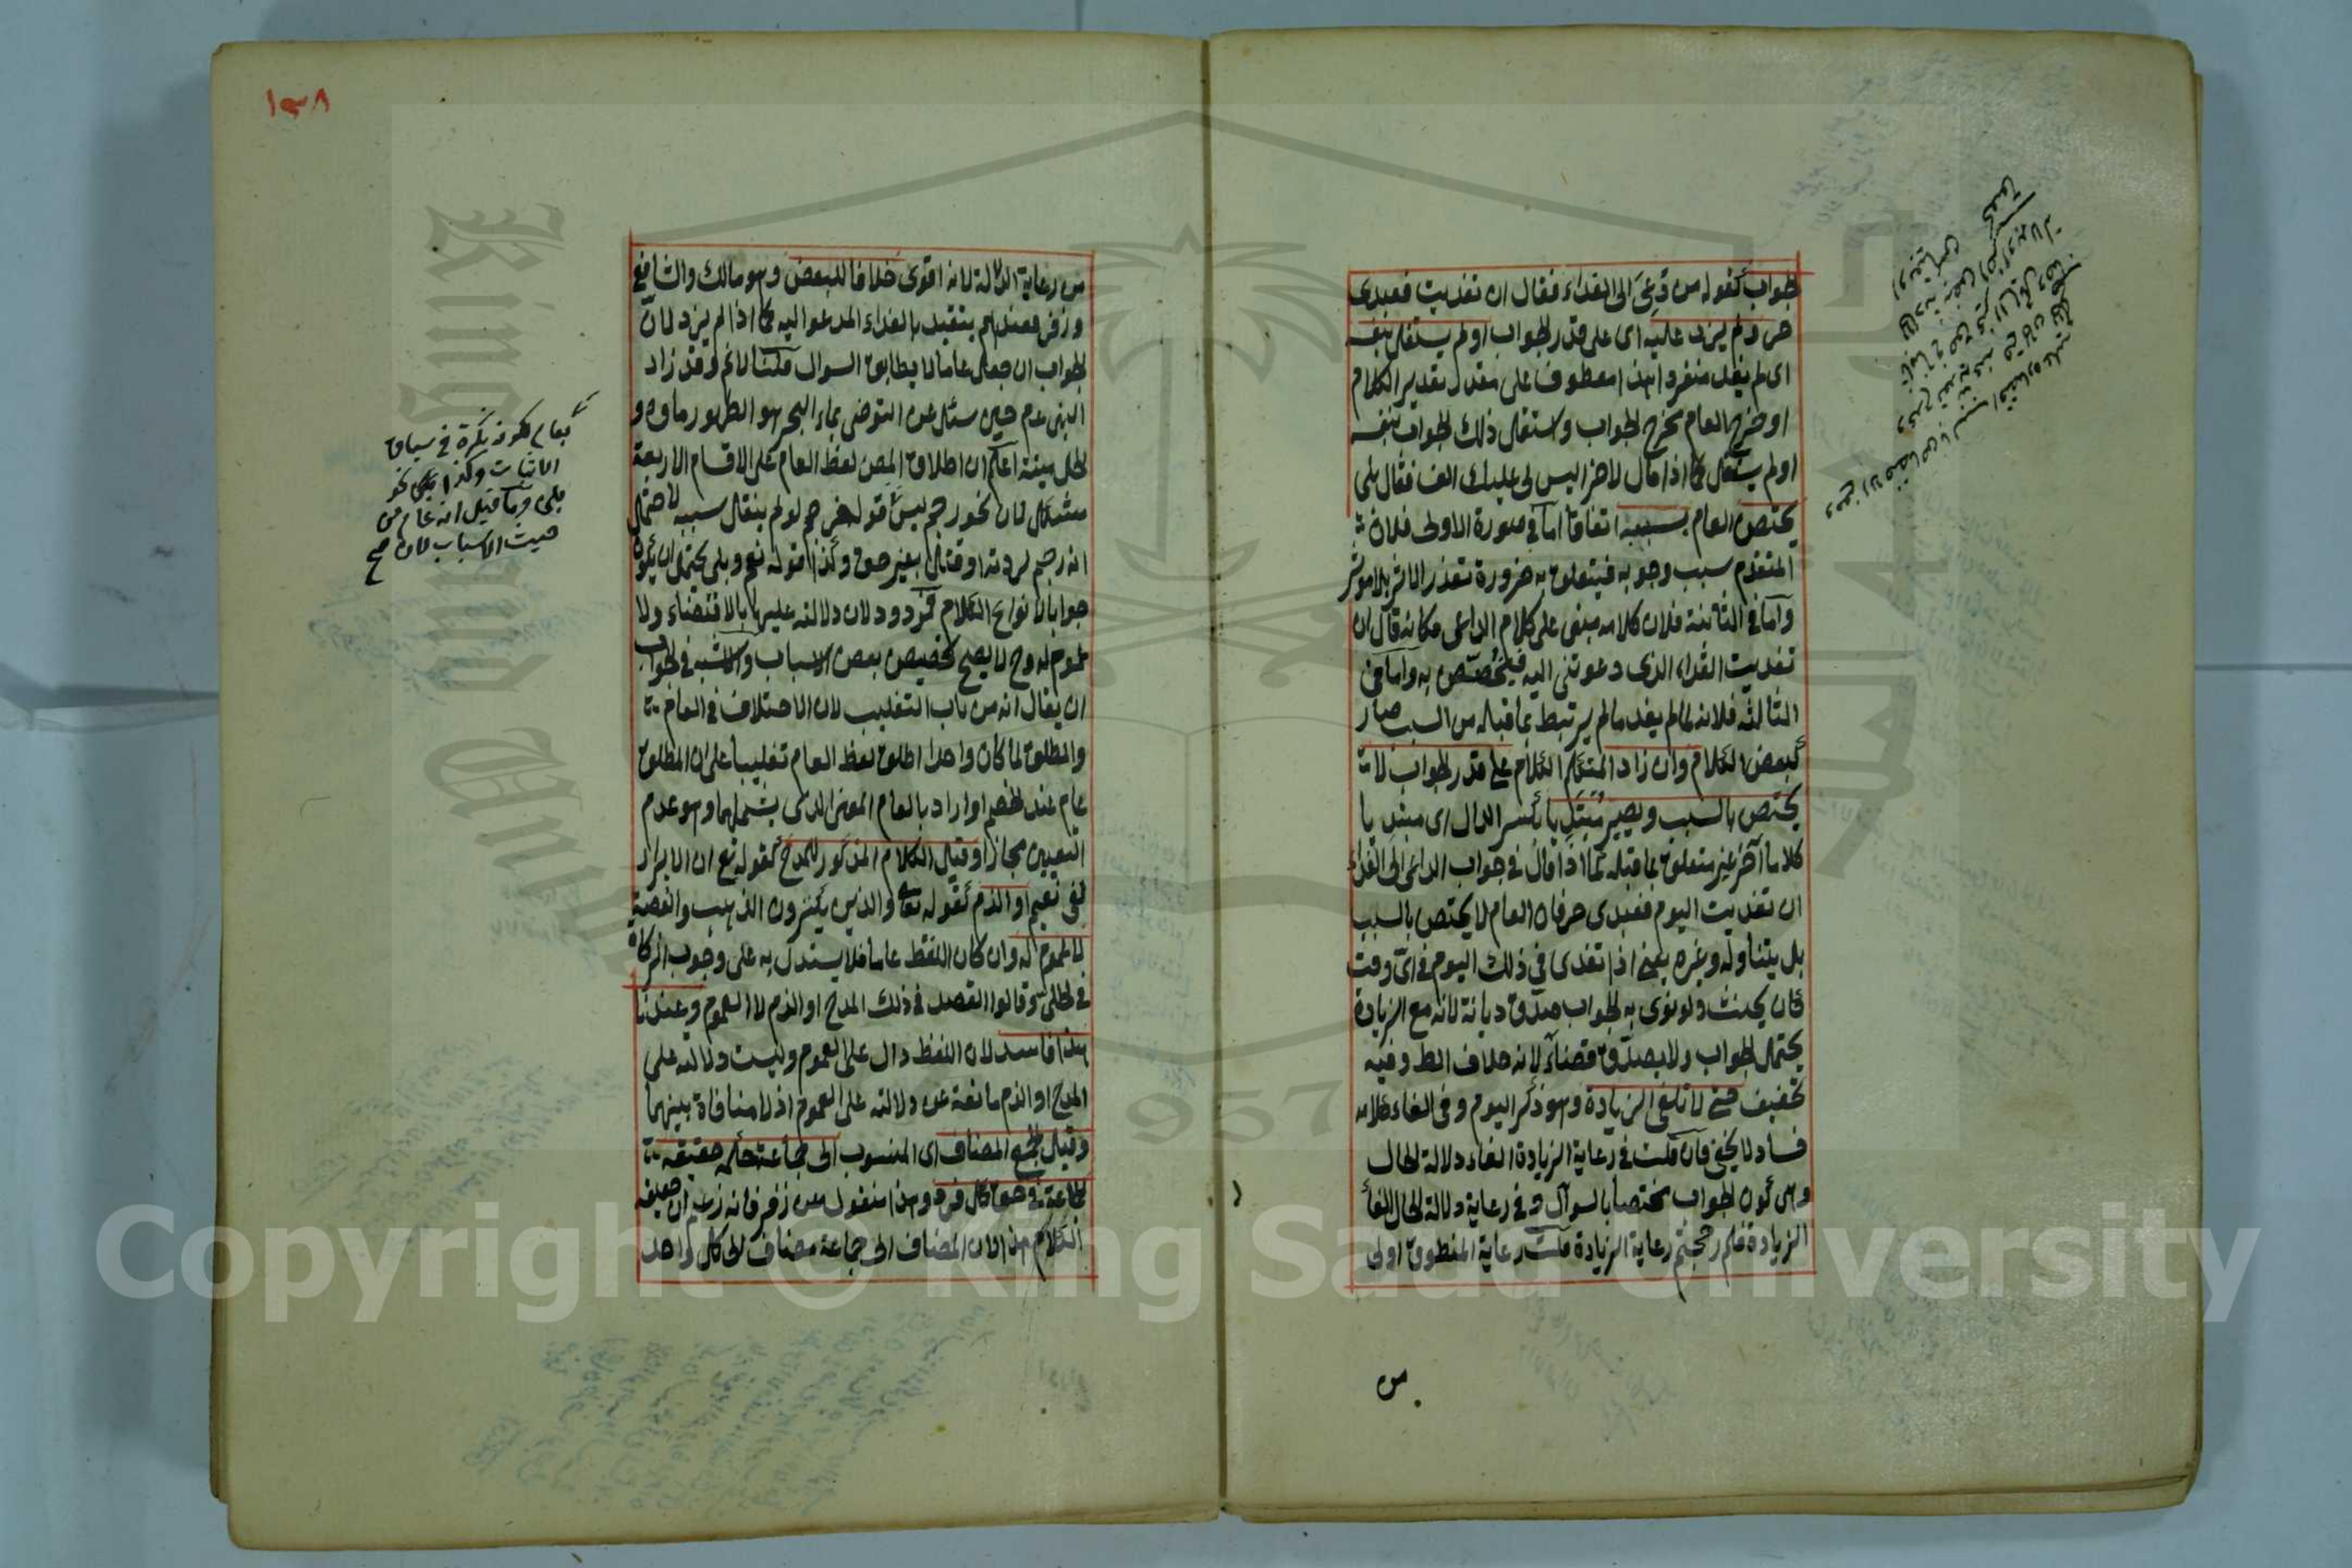 الجواب كقوله من دعى الى الغداء فقال ان تغديت فعبدى
حر ولم يزد عليه اى على قدر الجواب او لم يستقل بنفسه
اى لم يفد منفردا هذا معطوف على مقدر تقدير الكلام
او خرج العام مخرج الجواب واستقل ذلك الجواب بنفسه
او لم يستقل كما اذا قال لاخر اليس لى عليك الف فقال بلى
يختص العام بسببه اتفاقا اما فى صورة الاولى فلان
المتقدم سبب وجوبه فيتعلق به ضرورة تعذر الاثر بلا موثر
واما فى الثانية فلان كلامه مبنى على كلام الداعى فكانه قال ان
تغديت الغداء الذى دعوتنى اليه فيختص به واما فى
الثالثة فلانه لما لم يفد ما لم يرتبط بما قبله من السبب صار
كبعض الكلام وان زاد المتكلم الكلام على قدر الجواب لا
يختص بالسبب ويصير مبتديا بكسر الدال اى مبتديا
كلاما آخر غير متعلق بما قبله كما اذا قال فى جواب الداعى الى الغداء
ان تغديت اليوم فعبدى حر فان العام لا يختص بالسبب
بل يتناوله وغيره يعنى اذا تغدى فى ذلك اليوم فى اى وقت
كان يحنث ولو نوى به الجواب صدق ديانة لانه مع الزيادة
يحتمل الجواب ولا يصدق قضاء لانه خلاف الظ وفيه
تخفيف حتى لا تلغى الزيادة وهو ذكر اليوم وفى الغاء كلامه
فساد لا يخفى فان قلت فى رعاية الزيادة الغاء دلالة الحال
وهى كون الجواب مختصا بالسوال وفى رعاية دلالة الحال الغاء
الزيادة فلم رجحتم رعاية الزيادة قلت رعاية المنطوق اولى
من
١٣٨
من رعاية الدلالة لانه اقوى خلافا للبعض وهو مالك والشافعى
وزفر فعندهم يتقيد بالغداء المدعو اليه كما اذا لم يزد لان
الجواب ان جعل عاما لا يطابق السوال قلنا لا نم وقد زاد
النبى عم حين سئل عن التوضى بماء البحر هو الطهور ماوه و
الحل ميتته اعلم ان اطلاق المص لفظ العام على الاقسام الاربعة
مشكل لان نحو رجم ليس قوله فرجم لو لم ينقل سببه لاحتمال
انه رجم لردته او قتال بغير حق وكذا قوله نعم وبلى يحتمل ان يكون
جوابا لانواع الكلام مردود لان دلالته عليها بالاقتضاء ولا
عموم له وح لا يصح تخصيص بعض الاسباب والاشبه فى الجواب
ان يقال انه من باب التغليب لان الاختلاف فى العام
والمطلق لما كان واحدا اطلق لفظ العام تغليبا على ان المطلق
عام عند الخصم او اراد بالعام المعنى الذى يشملهما وهو عدم
التعيين مجازا وقيل الكلام المذكور للمدح كقوله تع ان الابرار
لفى نعيم او الذم كقوله تعالى والذين يكنزون الذهب والفضة
لا عموم له وان كان اللفظ عاما فلا يستدل به على وجوب الزكاة
فى الحلى وقالوا القصد فى ذلك المدح او الذم لا العموم وعندنا
هذا فاسد لان اللفظ دال على العموم وليست دلالته على
المدح او الذم مانعة عن دلالته على العموم اذ لا منافاة بينهما
وقيل الجمع المضاف اى المنسوب الى جماعة حكمه حقيقة
الجماعة فى حق كل فرد وهذا منقول عن زفر فانه زعم ان حقيقة
الكلام هذا لان المضاف الى جماعة مضاف الى كل واحد
بعام لكونه نكرة فى سياق
الاثبات وكذا بلى نحو
بلى وما قيل انه عام من
حيث الاسباب لان صح
King Saud University
1957
Copyright © King Saud University